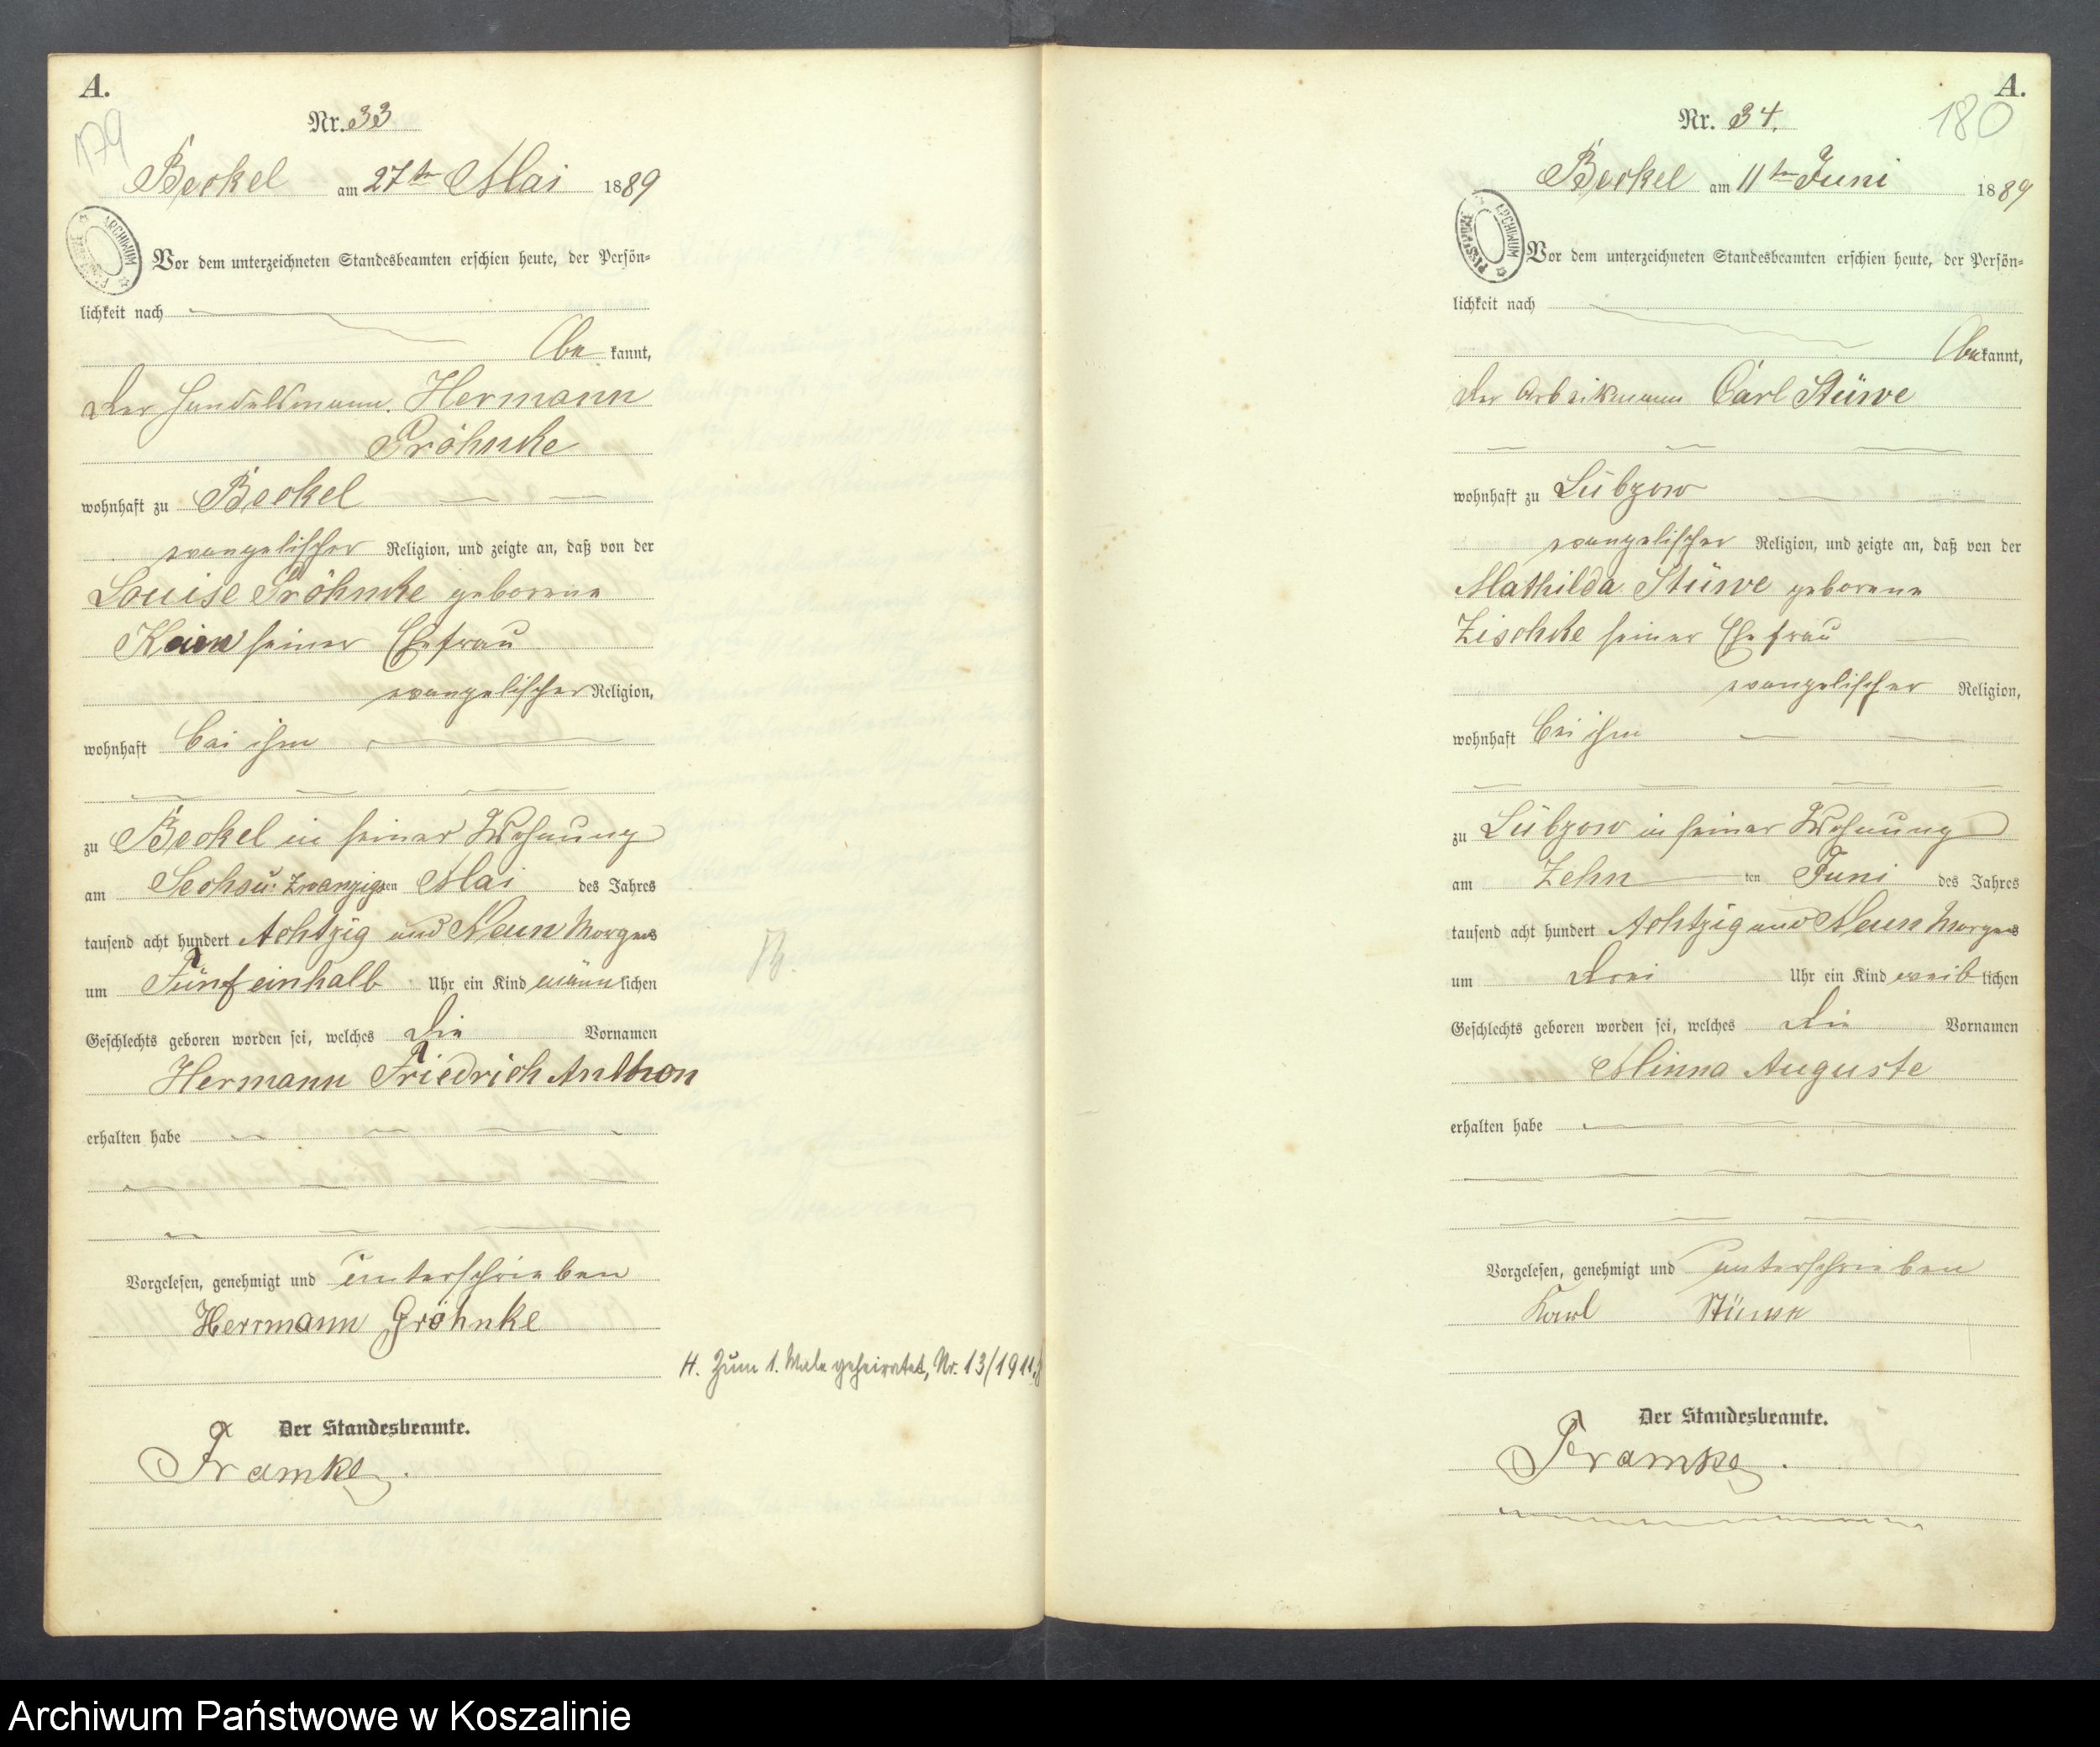 A.
179
Nr. 33
Beckel am 27ten Mai 1889
ARCHIWUM
Vor dem unterzeichneten Standesbeamten erschien heute, der Persön-
lichkeit nach
be kannt,
der Handelsmann Hermann
Gröhncke
wohnhaft zu Beckel
evangelischer Religion, und zeigte an, daß von der
Louise Gröhncke geborene
seiner Ehefrau
evangelischer Religion,
wohnhaft bei ihm
zu Beckel in seiner Wohnung
am Sechs u. Zwanzigsten Mai des Jahres
tausend acht hundert Achtzig und Neun Morgens
um Fünf einhalb Uhr ein Kind männlichen
Geschlechts geboren worden sei, welches die Vornamen
Hermann Friedrich Anthon
erhalten habe
Vorgelesen, genehmigt und unterschrieben
Herrmann Gröhnke
H. Zum 1. Male geheiratet, Nr. 13/1911
Der Standesbeamte.
Framke.
A.
180
Nr. 34.
Beckel am 11ten Juni 1889
ARCHIWUM
Vor dem unterzeichneten Standesbeamten erschien heute, der Persön-
lichkeit nach
bekannt,
der Arbeitsmann Carl Stüwe
wohnhaft zu Lübzow
evangelischer Religion, und zeigte an, daß von der
Mathilda Stüwe geborene
Zischke seiner Ehefrau
evangelischer Religion,
wohnhaft bei ihm
zu Lübzow in seiner Wohnung
am Zehn ten Juni des Jahres
tausend acht hundert Achtzig und Neun Morgens
um drei Uhr ein Kind weiblichen
Geschlechts geboren worden sei, welches die Vornamen
Minna Auguste
erhalten habe
Vorgelesen, genehmigt und unterschrieben
Karl Stüwe
Der Standesbeamte.
Framke.
Archiwum Państwowe w Koszalinie